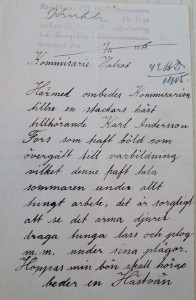 Kommisarie Hilvat
Härmed ombedes Kommisarien
tillse en stackars häst
tillhörande Karl Andersson
Fors som haft böld som
övergått till varbildning
vilket denna haft hela
sommaren under allt
tungt arbete, det är sorgligt
att se det arma djuret
draga tunga lass och plog
m.m. under sina plågor.
Hoppas min bön skall höras
beder en Hästvän